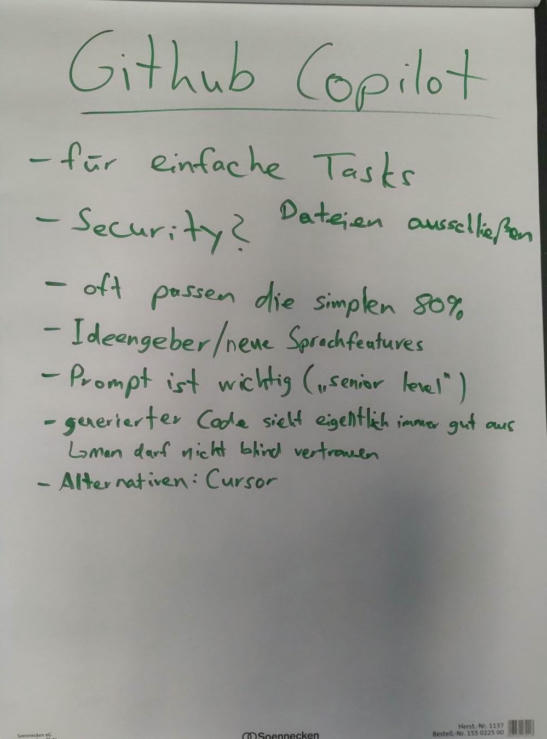 Github Copilot
- für einfache Tasks
- Security? Dateien ausschließen
- oft passen die simplen 80%
- Ideengeber/neue Sprachfeatures
- Prompt ist wichtig („senior level")
- generierter Code sieht eigentlich immer gut aus
↳ man darf nicht blind vertrauen
- Alternativen: Cursor
Soennecken eG
Soennecken
Herst.-Nr. 1137
Bestell.-Nr. 155 0225 00